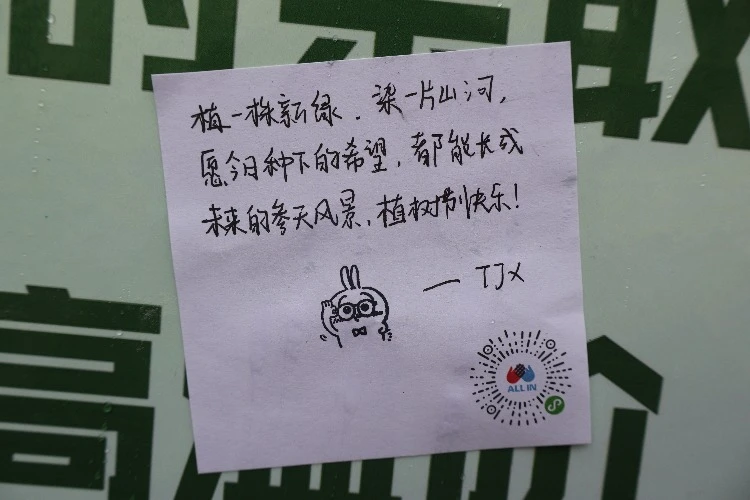 的未敢
植一株新绿，染一片山河，
愿今日种下的希望，都能长成
未来的参天风景，植树节快乐！
— TJX
ALL IN
高价